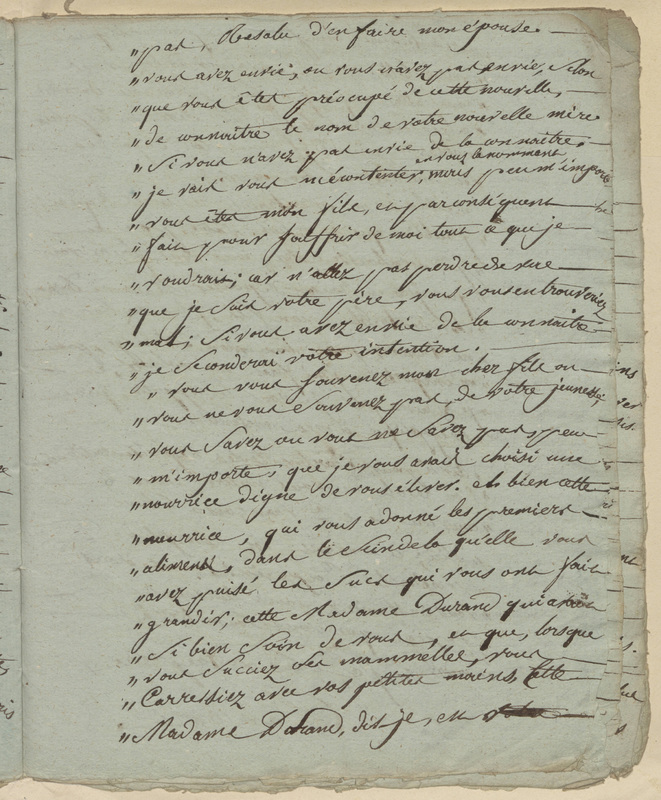 „ pas, Résolu d'en faire mon épouse.
„ vous avez envie, ou vous n'avez pas envie, selon
„ que vous êtes préocupé de cette nouvelle,
„ de connaitre le nom de votre nouvelle mère
„ Si vous n'avez pas envie de la connaitre,
en vous la nommant
„ je vais vous mécontenter, mais peu m'importe
„ vous êtes mon fils, et par conséquent
„ fait pour souffrir de moi tout ce que je
„ voudrais; car n'allez pas perdre de vue
„ que je suis votre père, vous vous en trouveriez
„ mal; Si vous avez envie de la connaitre
„ je seconderai votre intention.
„ vous vous souvenez mon cher fils ou
„ vous ne vous souvenez pas, de votre jeunesse,
„ vous savez ou vous ne savez pas, peu
„ m'importe, que je vous avais choisi une
„ nourrice digne de vous élever. eh bien cette
„ nourrice, qui vous a donné les premiers
„ aliments, dans le sein de la qu'elle vous
„ avez puisé les sucs qui vous ont fait
„ grandir; cette Madame Durand qui avait
„ Si bien soin de vous, et que, lorsque
„ vous succiez ses mammelles, vous
„ Carressiez avec vos petites mains, cette
„ Madame Durand, dis je, est